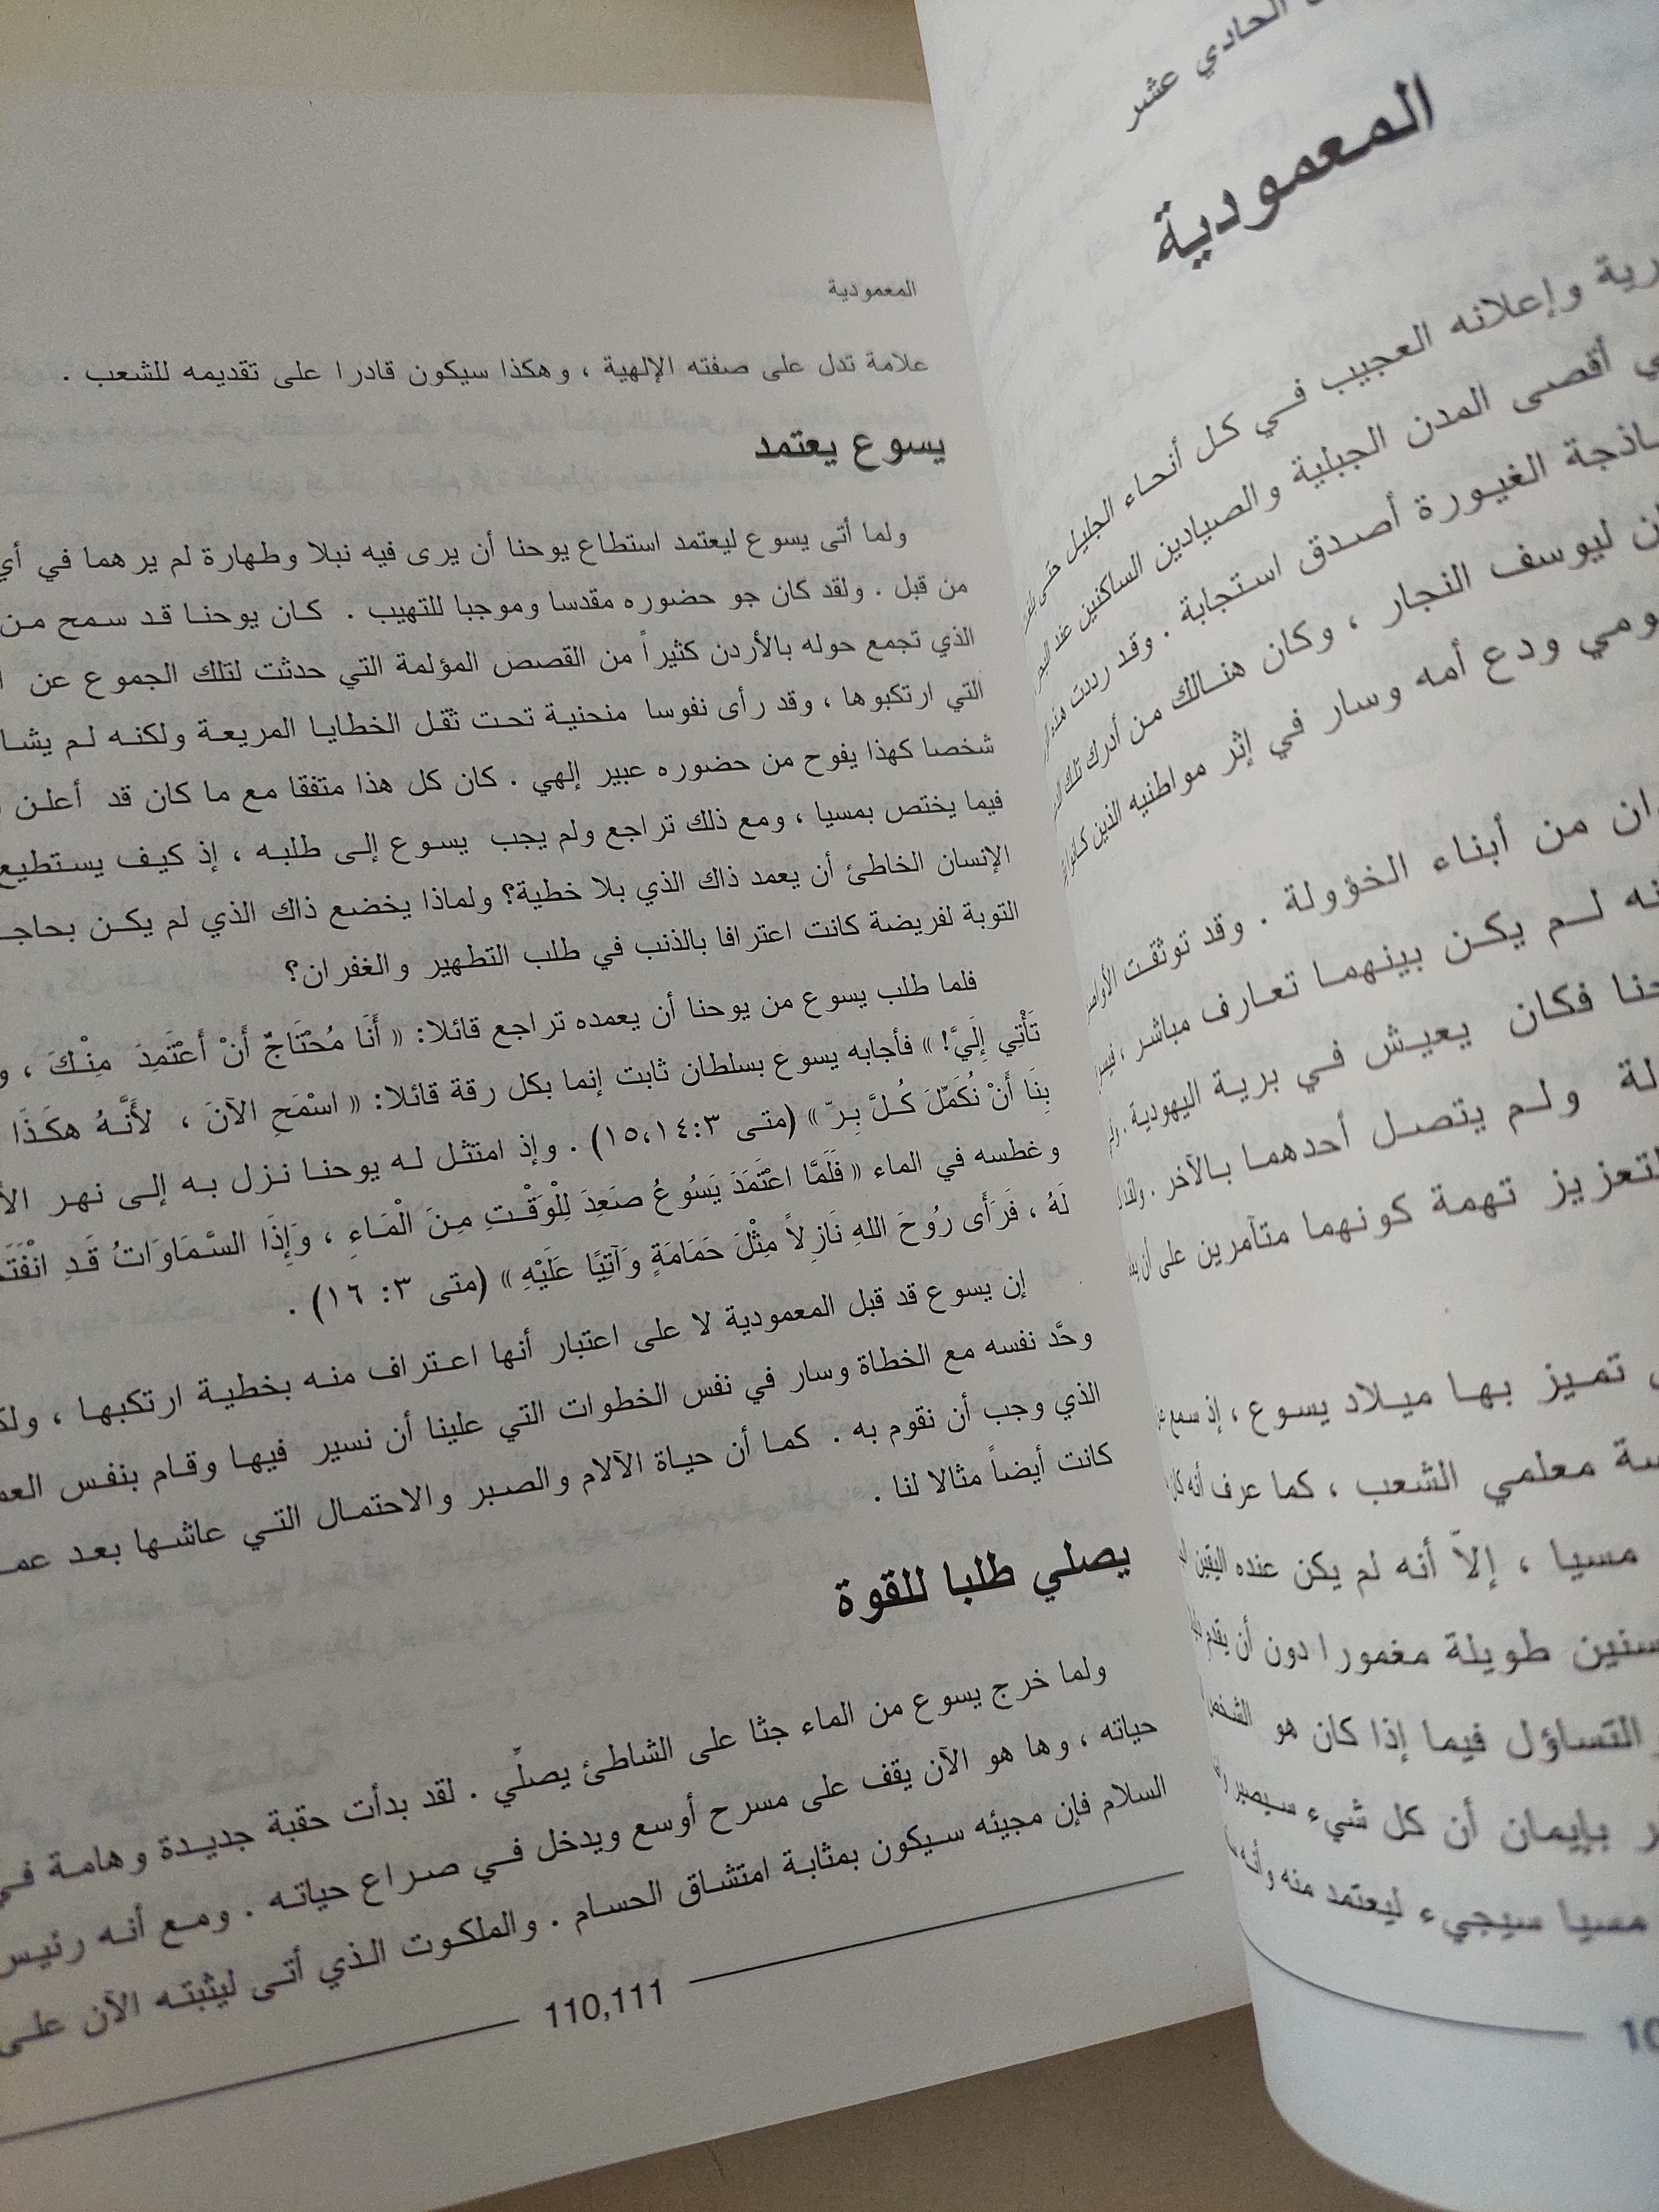 الحادي عشر
المعمودية
وإعلانه العجيب في كل أنحاء الجليل حتى
أقصى المدن الجبلية والصيادين الساكنين عند
الغيورة أصدق استجابة . وقد رددت
ليوسف النجار ، وكان هنالك من أدرك تلك
ودع أمه وسار في إثر مواطنيه الذين كانوا
من أبناء الخؤولة . وقد توثقت
لم يكن بينهما تعارف مباشر ،
فكان يعيش في برية اليهودية .
ولم يتصل أحدهما بالآخر .
تهمة كونهما متآمرين على أن
تميز بها ميلاد يسوع ، إذ سمع
معلمي الشعب ، كما عرف أنه كان
مسيا ، إلاّ أنه لم يكن عنده اليقين
طويلة مغمورا دون أن يقدم
التساؤل فيما إذا كان هو الشخص
بإيمان أن كل شيء سيصير
مسيا سيجيء ليعتمد منه
المعمودية
علامة تدل على صفته الإلهية ، وهكذا سيكون قادرا على تقديمه للشعب .
يسوع يعتمد
ولما أتى يسوع ليعتمد استطاع يوحنا أن يرى فيه نبلا وطهارة لم يرهما في أي
من قبل . ولقد كان جو حضوره مقدسا وموجبا للتهيب . كان يوحنا قد سمح من
الذي تجمع حوله بالأردن كثيراً من القصص المؤلمة التي حدثت لتلك الجموع عن
التي ارتكبوها ، وقد رأى نفوسا منحنية تحت ثقل الخطايا المريعة ولكنه لم
شخصا كهذا يفوح من حضوره عبير إلهي . كان كل هذا متفقا مع ما كان قد أعلن
فيما يختص بمسيا ، ومع ذلك تراجع ولم يجب يسوع إلى طلبه ، إذ كيف يستطيع
الإنسان الخاطئ أن يعمد ذاك الذي بلا خطية؟ ولماذا يخضع ذاك الذي لم يكن
التوبة لفريضة كانت اعترافا بالذنب في طلب التطهير والغفران؟
فلما طلب يسوع من يوحنا أن يعمده تراجع قائلا: « أَنَا مُحْتَاجٌ أَنْ أَعْتَمِدَ مِنْكَ ،
تَأْتِي إِلَيَّ! » فأجابه يسوع بسلطان ثابت إنما بكل رقة قائلا: « اسْمَحِ الآنَ ، لأَنَّهُ هكَذَا
بِنَا أَنْ نُكَمِّلَ كُلَّ بِرّ » (متى ٣:١٤،١٥) . وإذ امتثل له يوحنا نزل به إلى نهر
وغطسه في الماء « فَلَمَّا اعْتَمَدَ يَسُوعُ صَعِدَ لِلْوَقْتِ مِنَ الْمَاءِ ، وَإِذَا السَّمَاوَاتُ قَدِ
لَهُ ، فَرَأَى رُوحَ اللهِ نَازِلاً مِثْلَ حَمَامَةٍ وَآتِيًا عَلَيْهِ » (متى ٣: ١٦) .
إن يسوع قد قبل المعمودية لا على اعتبار أنها اعتراف منه بخطية ارتكبها ،
وحَّد نفسه مع الخطاة وسار في نفس الخطوات التي علينا أن نسير فيها وقام بنفس
الذي وجب أن نقوم به . كما أن حياة الآلام والصبر والاحتمال التي عاشها بعد
كانت أيضاً مثالا لنا .
يصلي طلبا للقوة
ولما خرج يسوع من الماء جثا على الشاطئ يصلّي . لقد بدأت حقبة جديدة وهامة في
حياته ، وها هو الآن يقف على مسرح أوسع ويدخل في صراع حياته . ومع أنه رئيس
السلام فإن مجيئه سيكون بمثابة امتشاق الحسام . والملكوت الذي أتى ليثبته الآن على
110,111